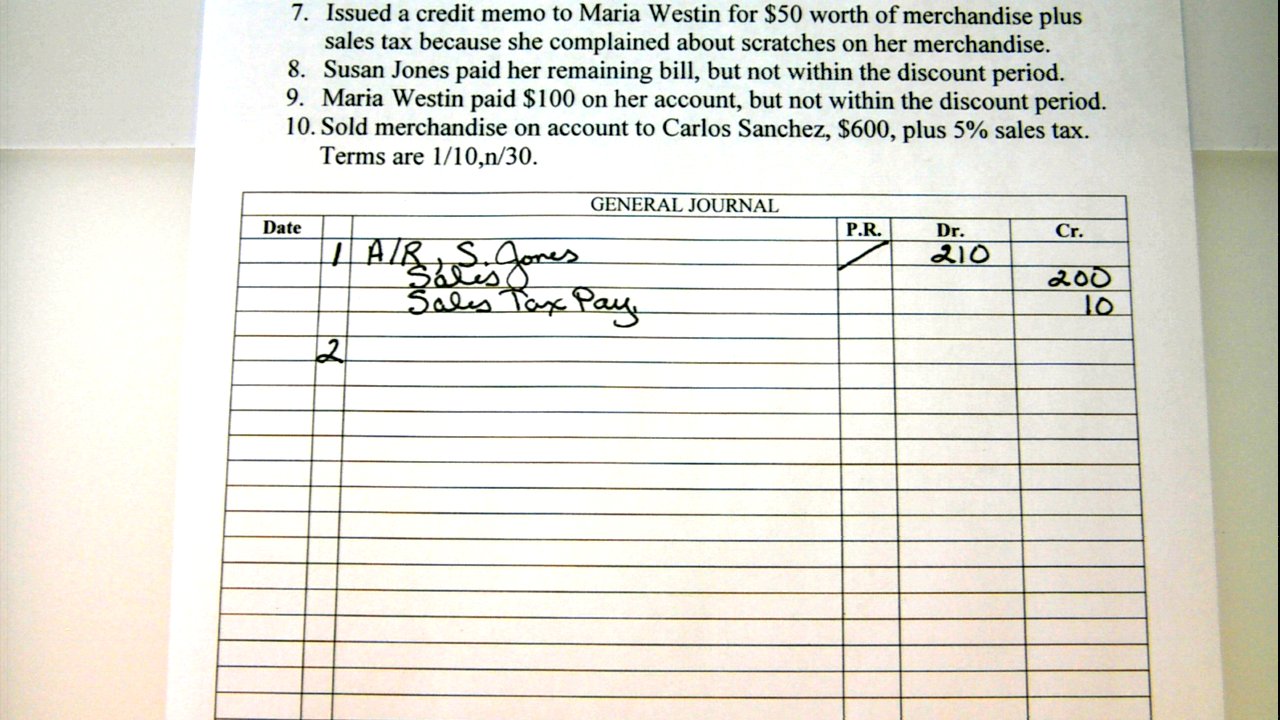 7. Issued a credit memo to Maria Westin for $50 worth of merchandise plus
sales tax because she complained about scratches on her merchandise.
8. Susan Jones paid her remaining bill, but not within the discount period.
9. Maria Westin paid $100 on her account, but not within the discount period.
10. Sold merchandise on account to Carlos Sanchez, $600, plus 5% sales tax.
Terms are 1/10,n/30.
GENERAL JOURNAL
Date P.R. Dr. Cr.
1 A/R, S. Jones 210
Sales 200
Sales Tax Pay. 10
2